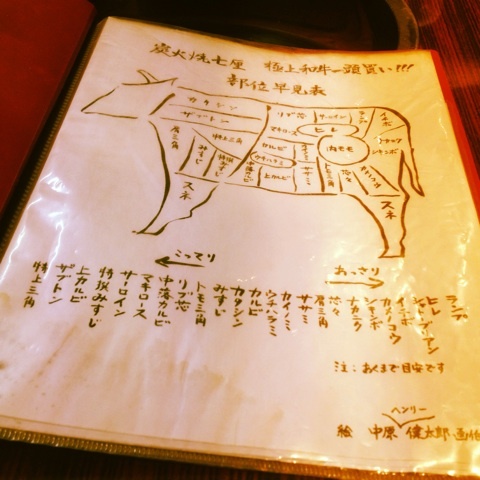 炭火焼七厘 極上和牛一頭買い!!!
部位早見表
カタシン
ザブトン
肩三角
みすじ
特上三角
特撰みすじ
スネ
リブ芯
サーロイン
ランプ
イチボ
マキロース
ヒレ
カルビ
内モモ
シキンボ
カイノミ
ウチハラミ
中落カルビ
上カルビ
ササミ
トモ三角
芯々
カメノコウ
スネ
こってり
あっさり
ランプ
ヒレ
シャトーブリアン
イチボ
カメノコウ
シキンボ
ナカニク
芯々
肩三角
ササミ
カイノミ
ウチハラミ
カルビ
カタシン
みすじ
トモ三角
リブ芯
中落カルビ
マキロース
サーロイン
特撰みすじ
上カルビ
ザブトン
特上三角
注:あくまで目安です
ヘンリー
絵 中原 健太郎 画伯